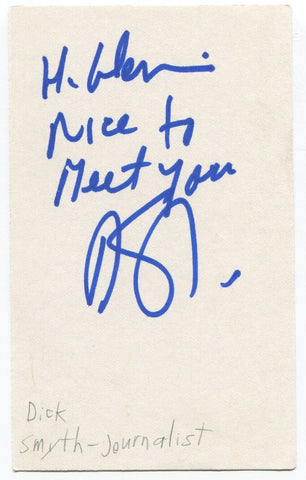 Hi Glenn
Nice to
Meet you
Dick
Smyth-Journalist